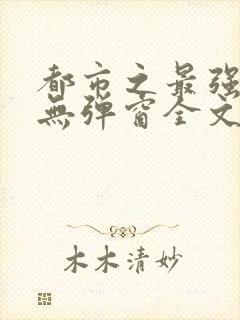 都市之最强
無弹窗全文
木木清妙